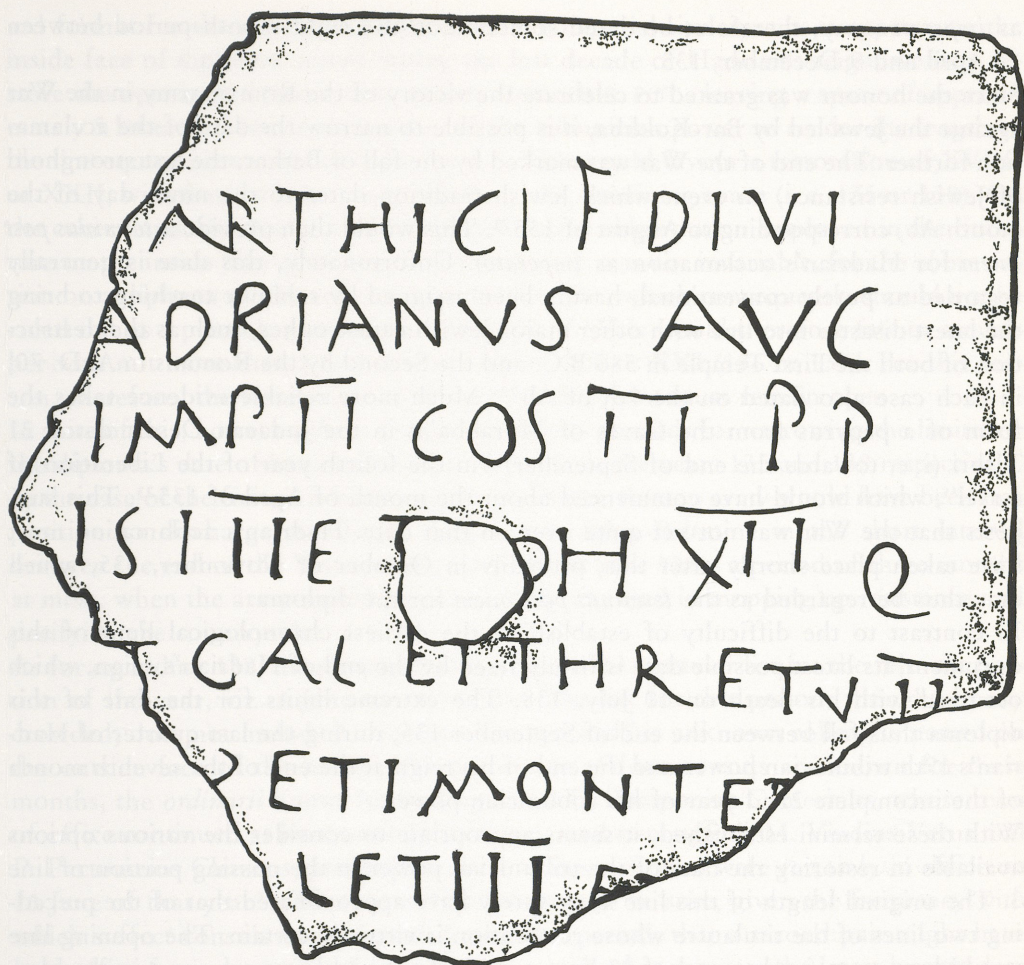 ARTHICI F DIVI
ADRIANVS AVG
I INP II COS III P P
IS III E OH XII Q
GAL ET I THR ET V
ET I MONT E
I ET IIII